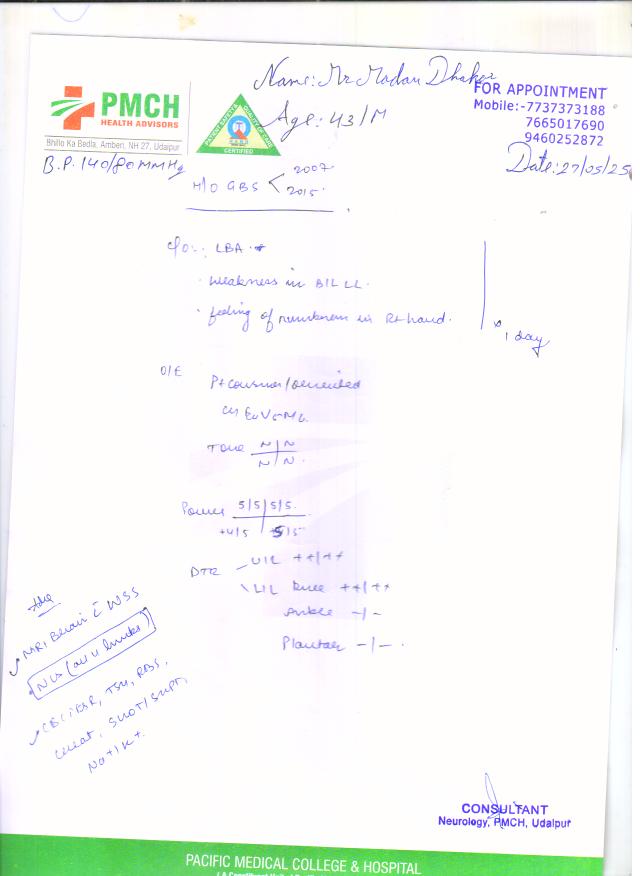 Name: Mr Madan Dhaker
FOR APPOINTMENT
Mobile:-7737373188
7665017690
9460252872
PMCH
HEALTH ADVISORS
Bhilo Ka Bedla, Amberi, NH 27, Udaipur
CERTIFIED
Age: 43/M
B.P. 140/80 MMHg
Date: 27/05/25
H/O GBS < 2007
2015
C/O:- LBA
· weakness in B/L LL.
· feeling of numbness in Rt hand.
x 1 day
O/E
Pt conscious/oriented
E4V5M6
Tone N|N
N|N
Power 5/5|5/5
+4/5 | 5/5
DTR - U/L ++/++
\ L/L knee ++/++
Ankle -/-
Plantar -/-
Adv
MRI Brain c̄ WSS
NCS (all 4 limbs)
CBC, ESR, TSH, RBS,
creat, SGOT/SGPT,
Na+/K+
CONSULTANT
Neurology, PMCH, Udaipur
PACIFIC MEDICAL COLLEGE & HOSPITAL